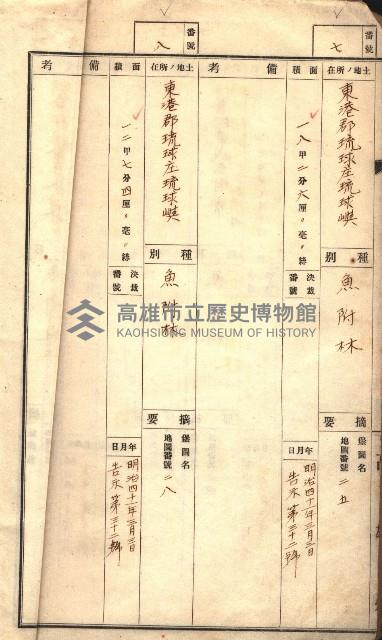 番號
七
土地ノ所在
東港郡琉球庄琉球嶼
種別
魚附林
摘要
堡圖名
地圖番號 二五
面積
一八甲二分六厘〃毫〃絲
決裁番號
年月日
明治四十一年三月三日
告示第三十二號
備考
番號
八
土地ノ所在
東港郡琉球庄琉球嶼
種別
魚附林
摘要
堡圖名
地圖番號 二八
面積
一二甲七分四厘〃毫〃絲
決裁番號
年月日
明治四十一年三月三日
告示第三十二號
備考
高雄市立歷史博物館
KAOHSIUNG MUSEUM OF HISTORY